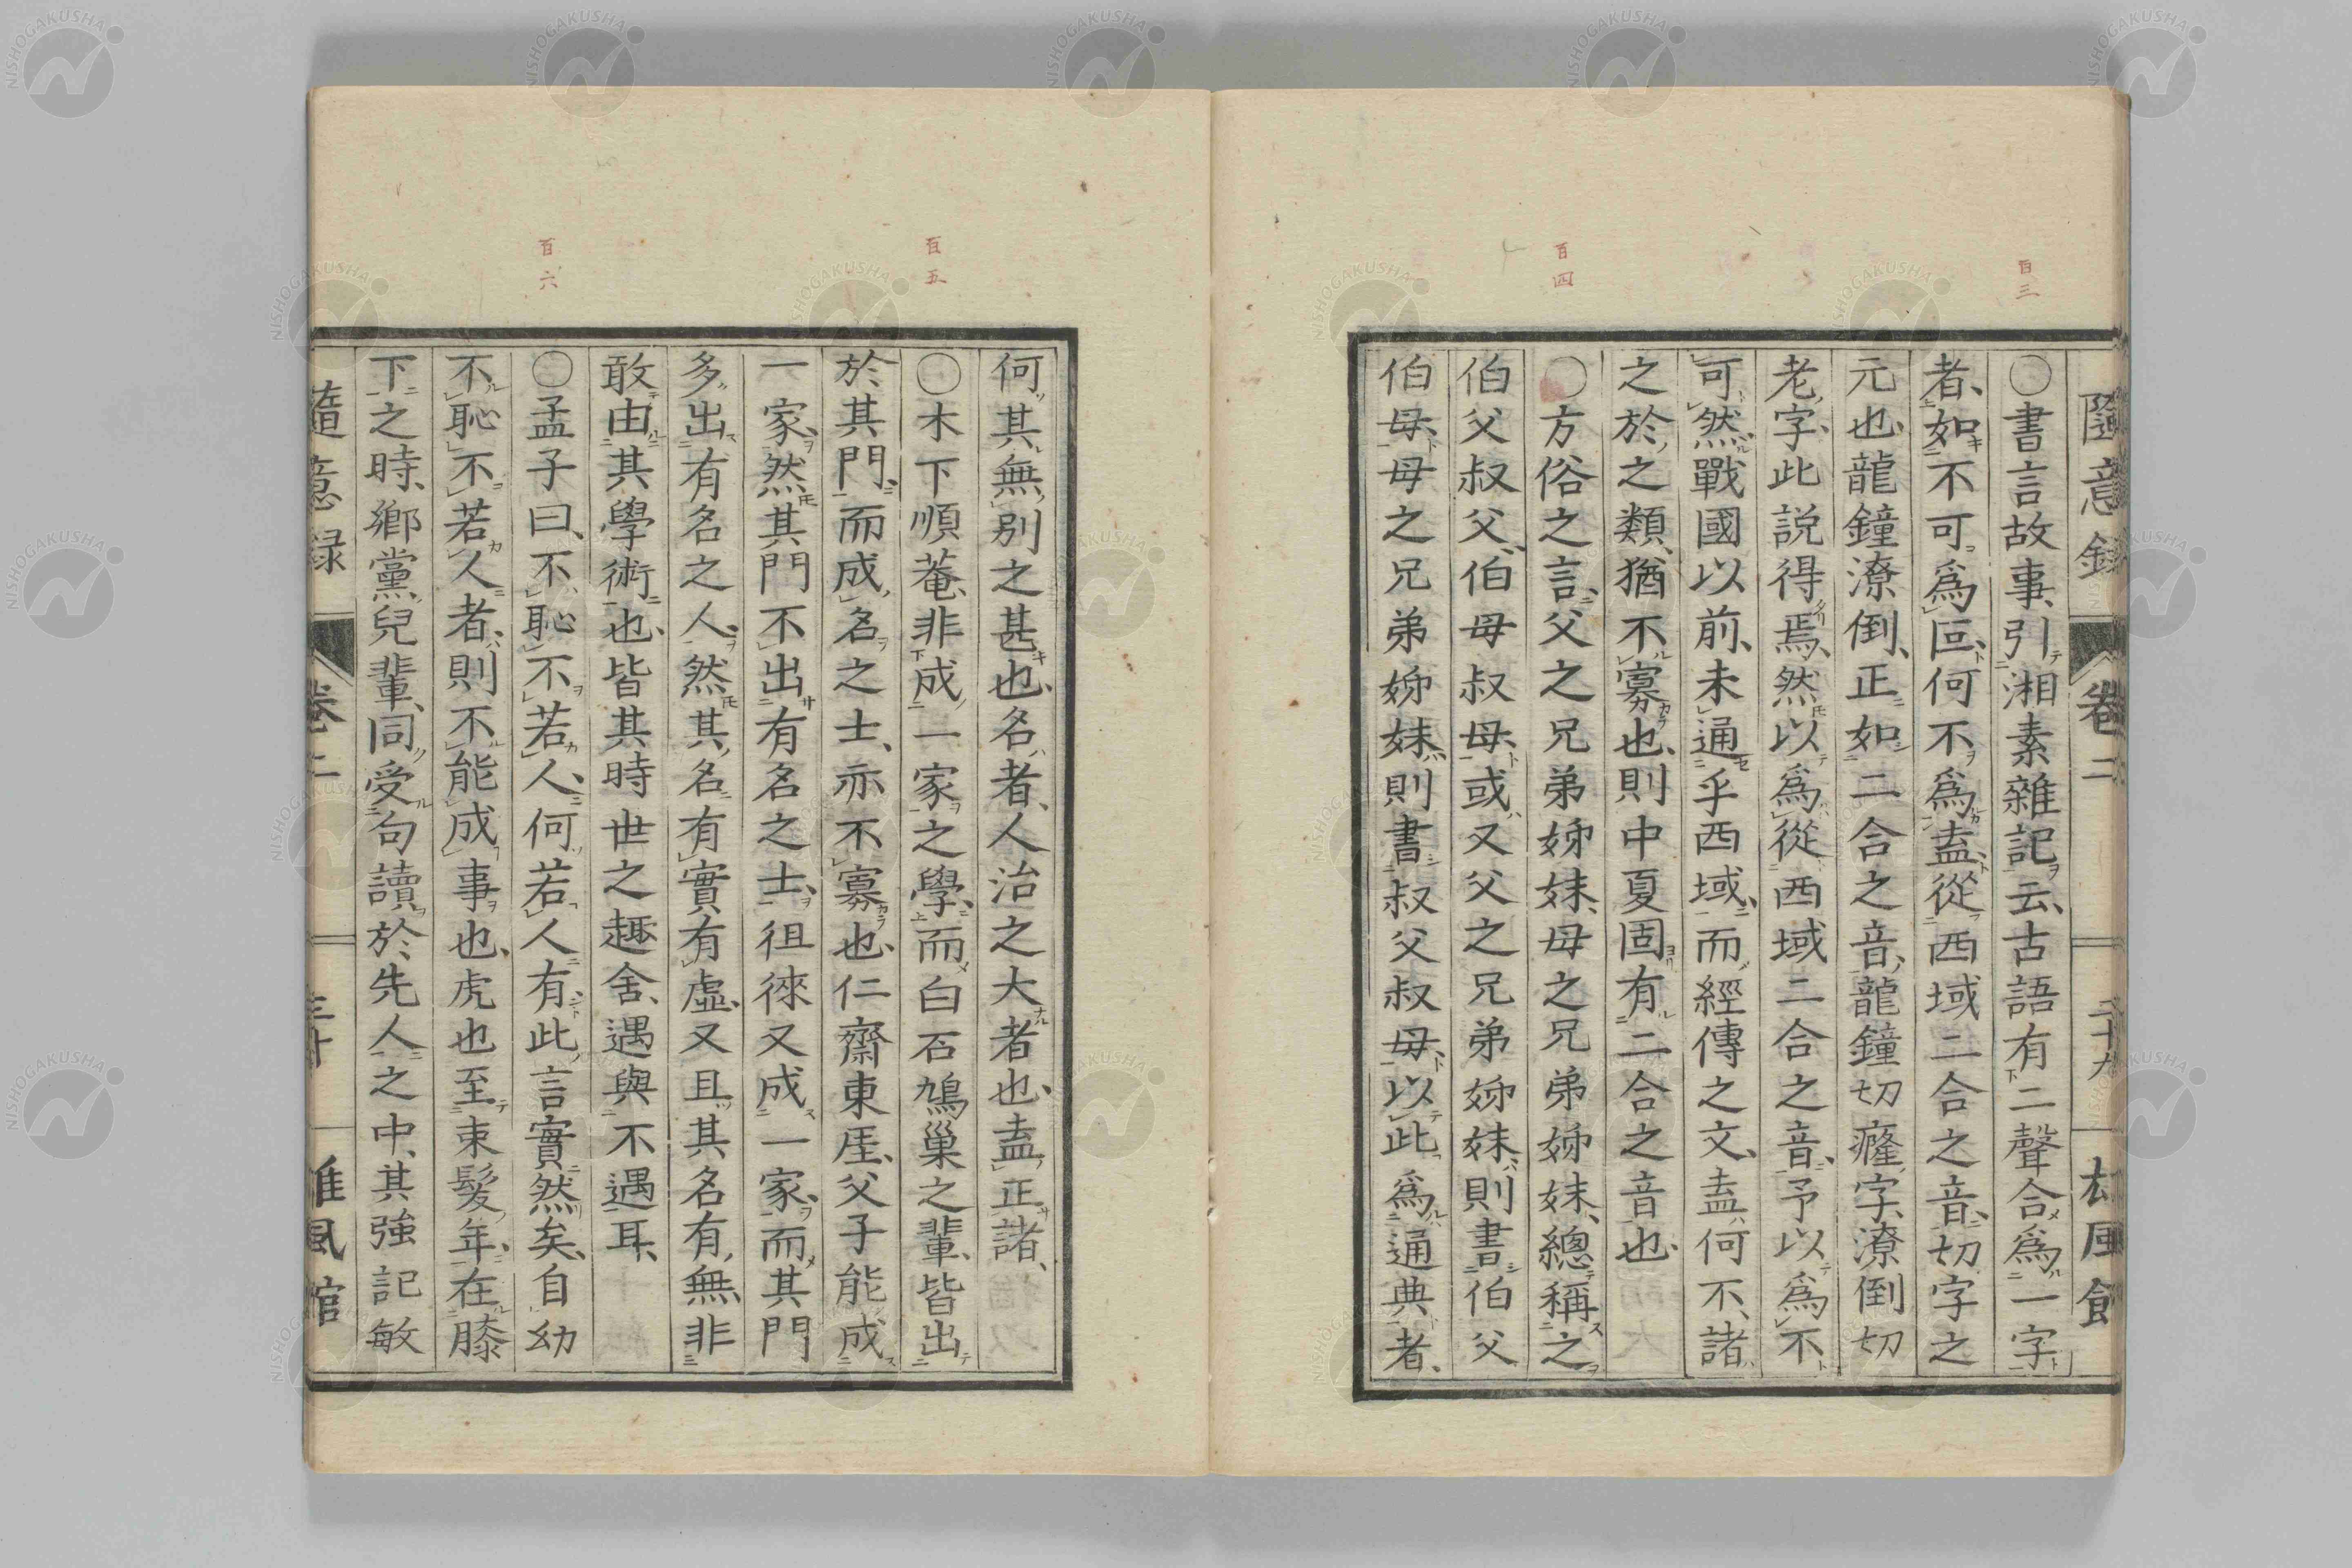 百三
百四
隨意録 卷二 二十九
〇書言故事、引湘素雜記云、古語有二聲合爲一字
者、如不可爲叵、何不爲盍、從西域二合之音、切字之
元也、龍鐘潦倒、正如二合之音、龍鐘切癃字、潦倒切
老字、此説得焉、然以爲從西域二合之音、予以爲不
可然、戰國以前、未通乎西域、而經傳之文、盍何不、諸
之於、之類、猶不寡也、則中夏固有二合之音也、
〇方俗之言、父之兄弟姊妹、母之兄弟姊妹、總稱之
伯父叔父、伯母叔母、或又父之兄弟姊妹、則書伯父
伯母、母之兄弟姊妹則書叔父叔母、以此爲通典者、
百五
百六
何其無別之甚也、名者、人治之大者也、盍正諸、
〇木下順菴、非成一家之學、而白石鳩巢之輩、皆出
於其門、而成名之士、亦不寡也、仁齋東厓、父子能成
一家、然其門不出有名之士、徂徠又成一家、而其門
多出有名之人、然其名有實有虛、又且其名有無、非
敢由其學術也、皆其時世之趣舍、遇與不遇耳、
〇孟子曰、不恥不若人、何若人有、此言實然矣、自幼
不恥不若人者、則不能成事也、虎也至束髮年、在膝
下之時、鄉黨兒輩、同受句讀於先人之中、其強記敏
隨意録 卷二 三十 雄風館